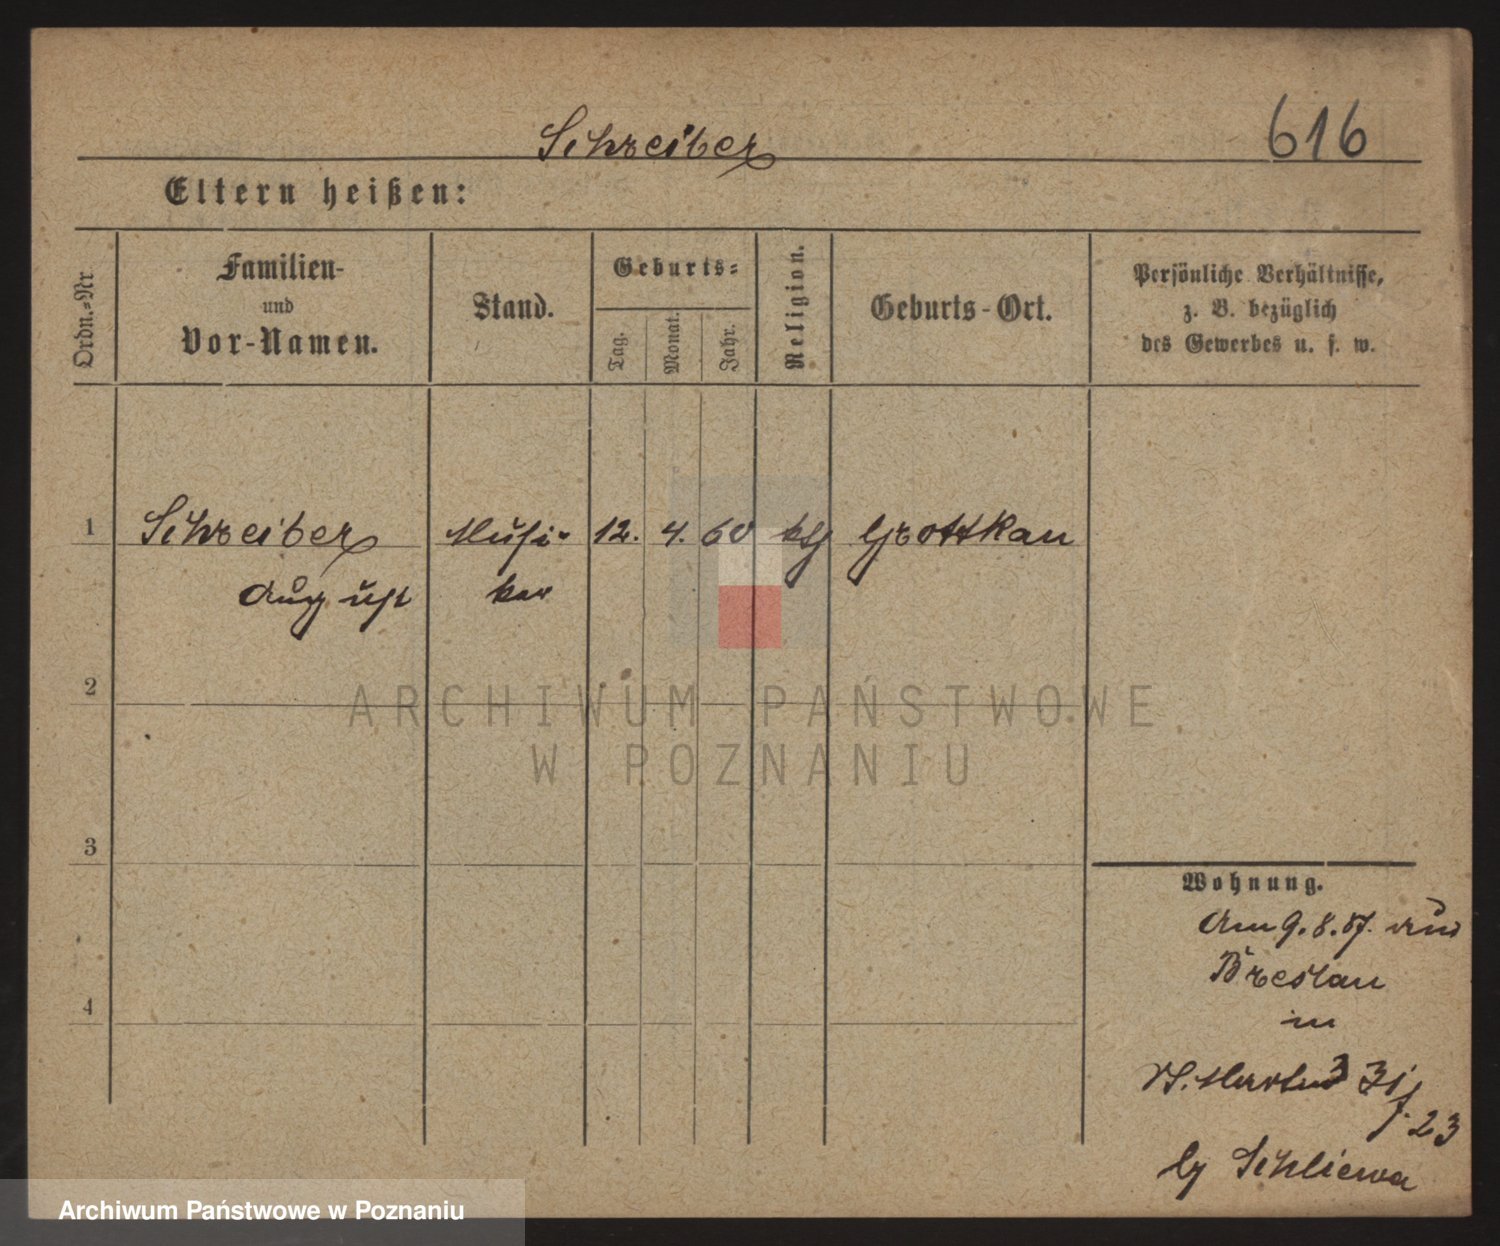 Schreiber
616
Eltern heißen:
Ordn.-Nr
Familien-
und
Vor-Namen.
Stand.
Geburts-
Tag.
Monat.
Jahr.
Religion.
Geburts-Ort.
Persönliche Verhältnisse,
z. B. bezüglich
des Gewerbes u. s. w.
1 Schreiber Musi- 12. 4. 60 Grottkau
August ker
2
3
4
Wohnung.
Am 9. 8. 87. aus
Breslau
in
St. Martin
23
by Schliewa
ARCHIWUM PAŃSTWOWE
W POZNANIU
Archiwum Państwowe w Poznaniu